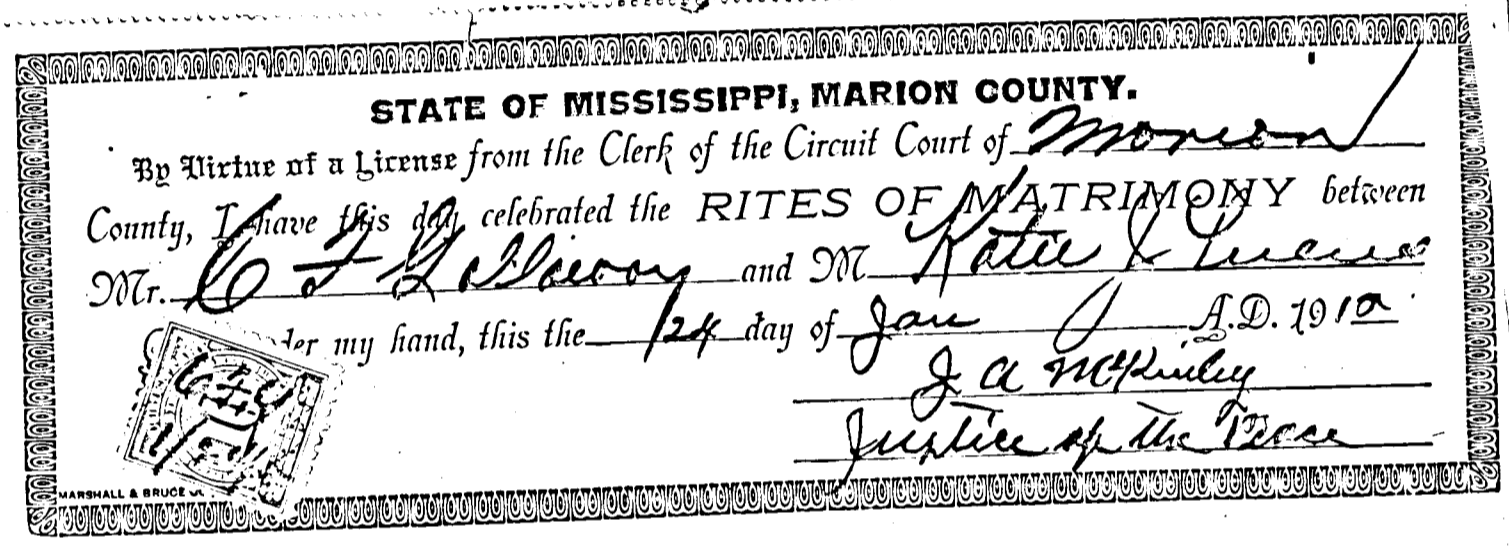 STATE OF MISSISSIPPI, MARION COUNTY.
By Virtue of a License from the Clerk of the Circuit Court of Marion
County, I have this day celebrated the RITES OF MATRIMONY between
Mr. C F and M Katie
my hand, this the day of Jan A.D. 191
J A McKinley
Justice of the Peace
MARSHALL & BRUCE